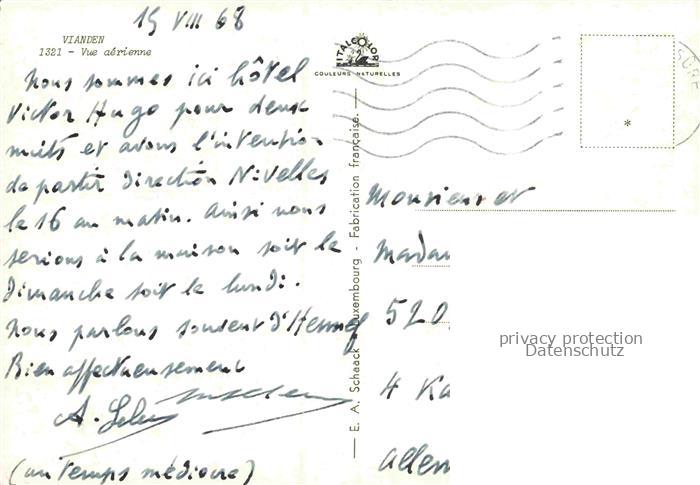 15 VIII 68
VIANDEN
1321 - Vue aérienne
Nous sommes ici hôtel
Victor Hugo pour deux
nuits et avons l'intention
de partir direction Nivelles
le 16 au matin. Ainsi nous
serions à la maison soit le
dimanche soit le lundi.
Nous parlons souvent d'Hennef
Bien affectueusement
A.
(un temps médiocre)
ITALCOLOR
COULEURS NATURELLES
E. A. Schaack - Luxembourg - Fabrication française.
*
Monsieur et
Madam
520
4 Ka
allem
privacy protection
Datenschutz